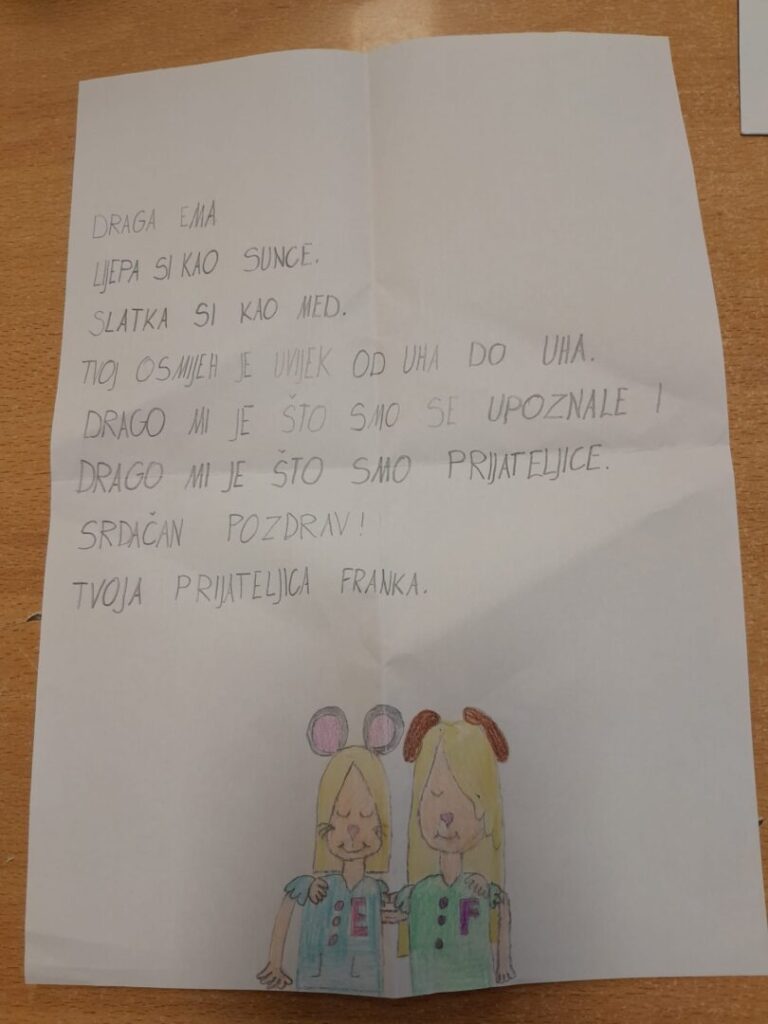 DRAGA EMA
LIJEPA SI KAO SUNCE.
SLATKA SI KAO MED.
TVOJ OSMIJEH JE UVIJEK OD UHA DO UHA.
DRAGO MI JE ŠTO SMO SE UPOZNALE I
DRAGO MI JE ŠTO SMO PRIJATELJICE.
SRDAČAN POZDRAV!
TVOJA PRIJATELJICA FRANKA.
E F